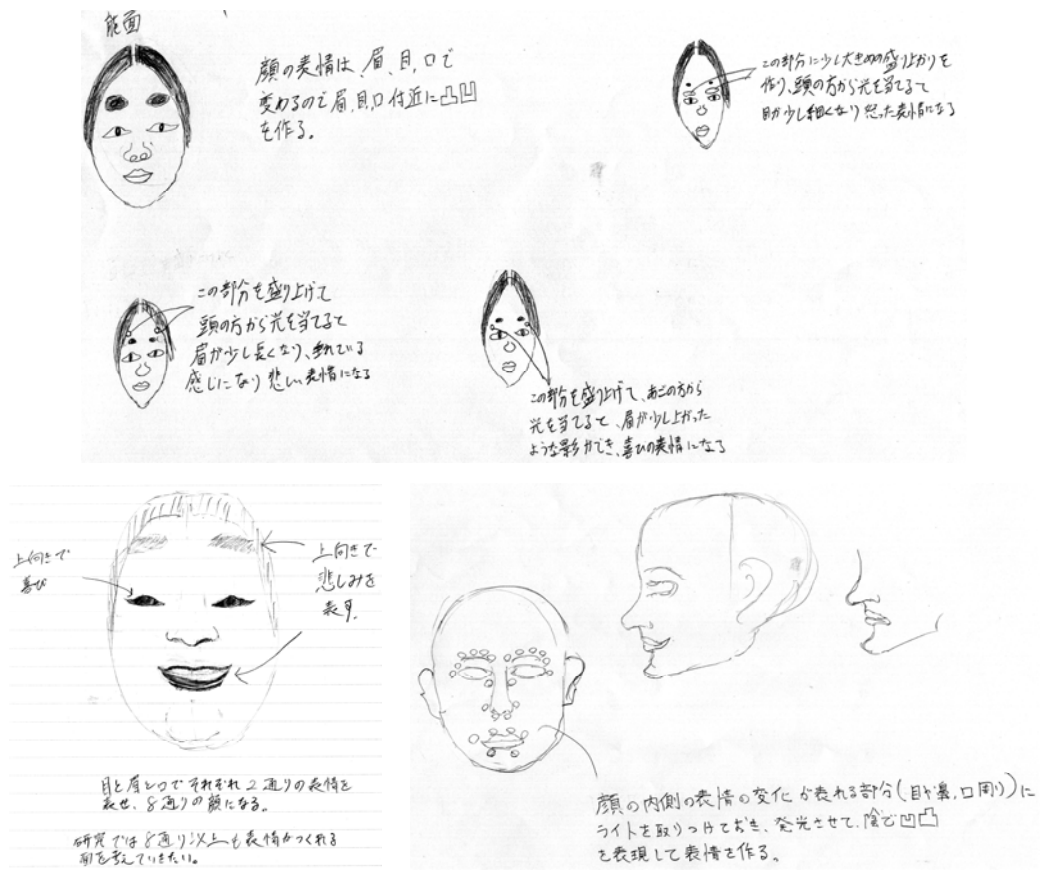 能面
顔の表情は、眉、目、口で
変わるので眉、目、口付近に凸凹
を作る。
この部分に少し大きめの盛り上がりを
作り、頭の方から光を当てると
目が少し細くなり怒った表情になる
この部分を盛り上げて
頭の方から光を当てると
眉が少し長くなり、垂れている
感じになり悲しい表情になる
この部分を盛り上げて、あごの方から
光を当てると、眉が少し上がった
ような影ができ、喜びの表情になる
上向きで
喜び
上向きで
悲しみを
表す.
目と眉と口でそれぞれ2通りの表情を
表せ、8通りの顔になる。
研究では8通り以上も表情がつくれる
面を考えていきたい。
顔の内側の表情の変化が表れる部分(目や鼻,口周り)に
ライトを取りつけておき、発光させて、陰で凹凸
を表現して表情を作る。